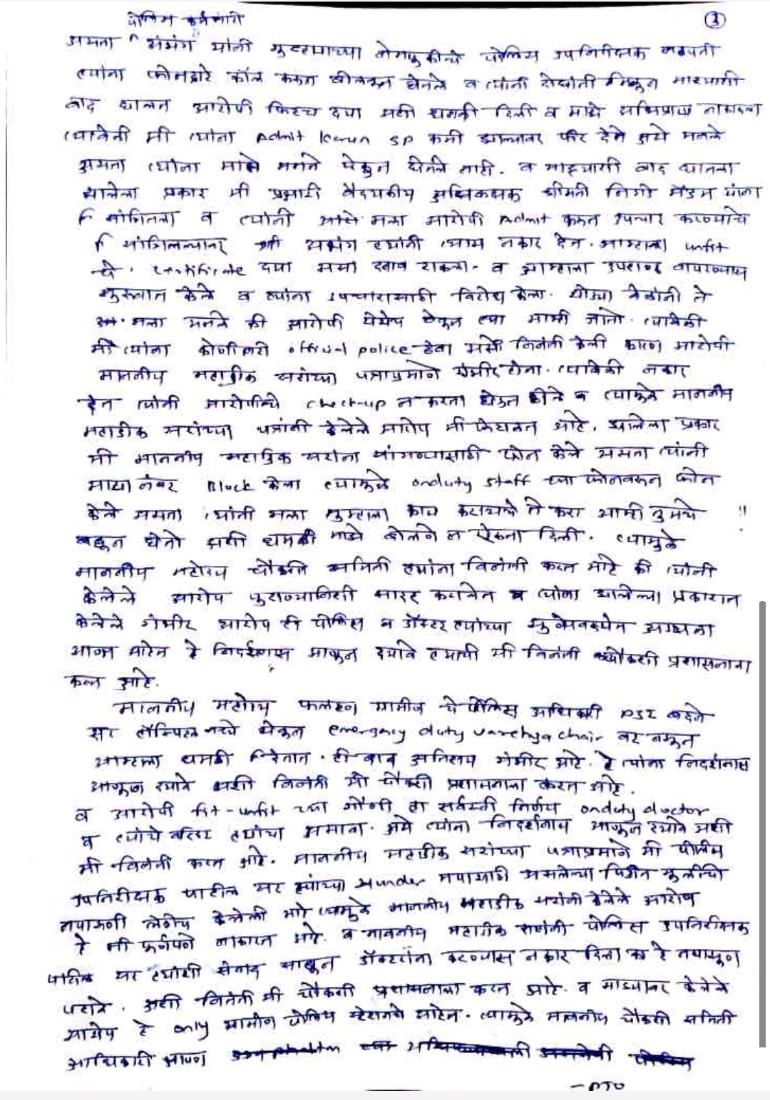 पोलिस कर्मचारी ③
असता यांनी पोलिस उपनिरीक्षक
त्यांना फोनद्वारे कॉल करून बोलवून घेतले व त्यांनी माझ्याशी
वाद घालत आरोपी फिटच द्या अशी धमकी दिली व माझे अभिप्राय
त्यावेळी मी त्यांना Admit करून BP कमी झाल्यावर फीट देते असे म्हणले
असता त्यांना माझे म्हणणे ऐकून घेतले नाही. व माझ्याशी वाद घातला
झालेला प्रकार मी प्रभारी वैद्यकीय अधिक्षक श्रीमती मॅडम यांना
सांगितला व त्यांनी असे मला आरोपी Admit करून उपचार करण्याचे
सांगितल्यावर श्री त्यांनी त्यास नकार देत. आम्हाला unfit
चे certificate द्या असा दबाव टाकला. व आम्हाला
केले व त्यांना उपचारासाठी विरोध केला. थोड्या वेळांनी ते
मला म्हणले की आरोपी येथेच ठेवून त्या आम्ही जातो. त्यावेळी
मी त्यांना कोणीतरी official police ठेवा असे विनंती केली कारण आरोपी
माननीय महाडीक सरांच्या पत्राप्रमाणे गंभीर होता. त्यावेळी नकार
देत त्यांनी आरोपीचे check-up न करता घेऊन गेले व त्यामुळे माननीय
महाडीक सरांच्या पत्रांनी केलेले आरोप मी फेटाळत आहे. झालेला प्रकार
मी माननीय महाडिक सरांना सांगण्यासाठी फोन केले असता त्यांनी
माझा नंबर Block केला त्यामुळे onduty staff च्या फोनवरून फोन
केले असता त्यांनी मला तुम्हाला काय करायचे ते करा आम्ही तुमचे
बघून घेतो अशी धमकी माझे बोलणे न ऐकता दिली. त्यामुळे !!
माननीय महोदय चौकशी समिती त्यांना विनंती करत आहे की त्यांनी
केलेले आरोप पुराव्यानिशी सादर करावेत व त्यांना झालेल्या प्रकारात
केलेले गंभीर आरोप ही पोलिस व डॉक्टर त्यांच्या
आणत आहेत हे निदर्शनास आणून द्यावे त्याची मी विनंती चौकशी प्रशासनाला
करत आहे.
माननीय महोदय फलटण ग्रामीण चे पोलिस अधिकारी PSI बदने
सर हॉस्पिटल मध्ये येऊन emergency duty varchya chair वर बसून
आम्हाला धमकी देतात. ही बाब अतिशय गंभीर आहे. हे त्यांना निदर्शनास
आणून द्यावे अशी विनंती मी चौकशी प्रशासनाला करत आहे.
व आरोपी fit-unfit च्या गोष्टी हा सर्वस्वी निर्णय onduty doctor
व त्यांचे वरिष्ठ त्यांचा असतो. असे त्यांना निदर्शनास आणून द्यावे अशी
मी विनंती करत आहे. माननीय महाडीक सरांच्या पत्राप्रमाणे मी पोलिस
उपनिरीक्षक पाटील सर त्यांच्या under तपासाची असलेल्या पिडीत मुलीची
तपासणी केलेली आहे त्यामुळे माननीय महाडीक सरांनी केलेले आरोप
हे मी पूर्णपणे नाकारत आहे. व माननीय महाडीक सरांनी पोलिस उपनिरीक्षक
पाटिल सर त्यांशी संवाद साधून डॉक्टरांना करण्यास नकार दिला का हे तपासून
पहावे. अशी विनंती मी चौकशी प्रशासनाला करत आहे. व माझ्यावर केलेले
आरोप हे only ग्रामीण पोलिस स्टेशनचे आहेत. त्यामुळे माननीय चौकशी समिती
अधिकारी आपण
-PTO